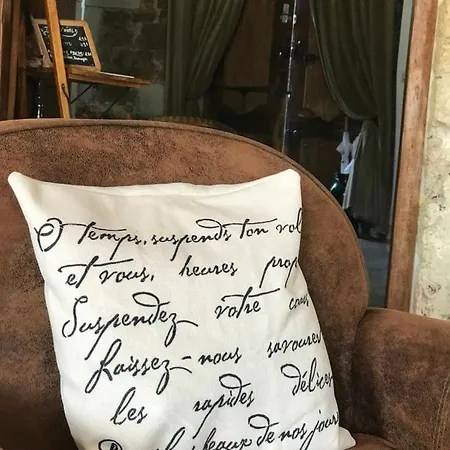 O temps, suspends ton vol
et vous, heures prop
Suspendez votre cou
Laissez-nous savourer
les rapides délices
beaux de nos jour